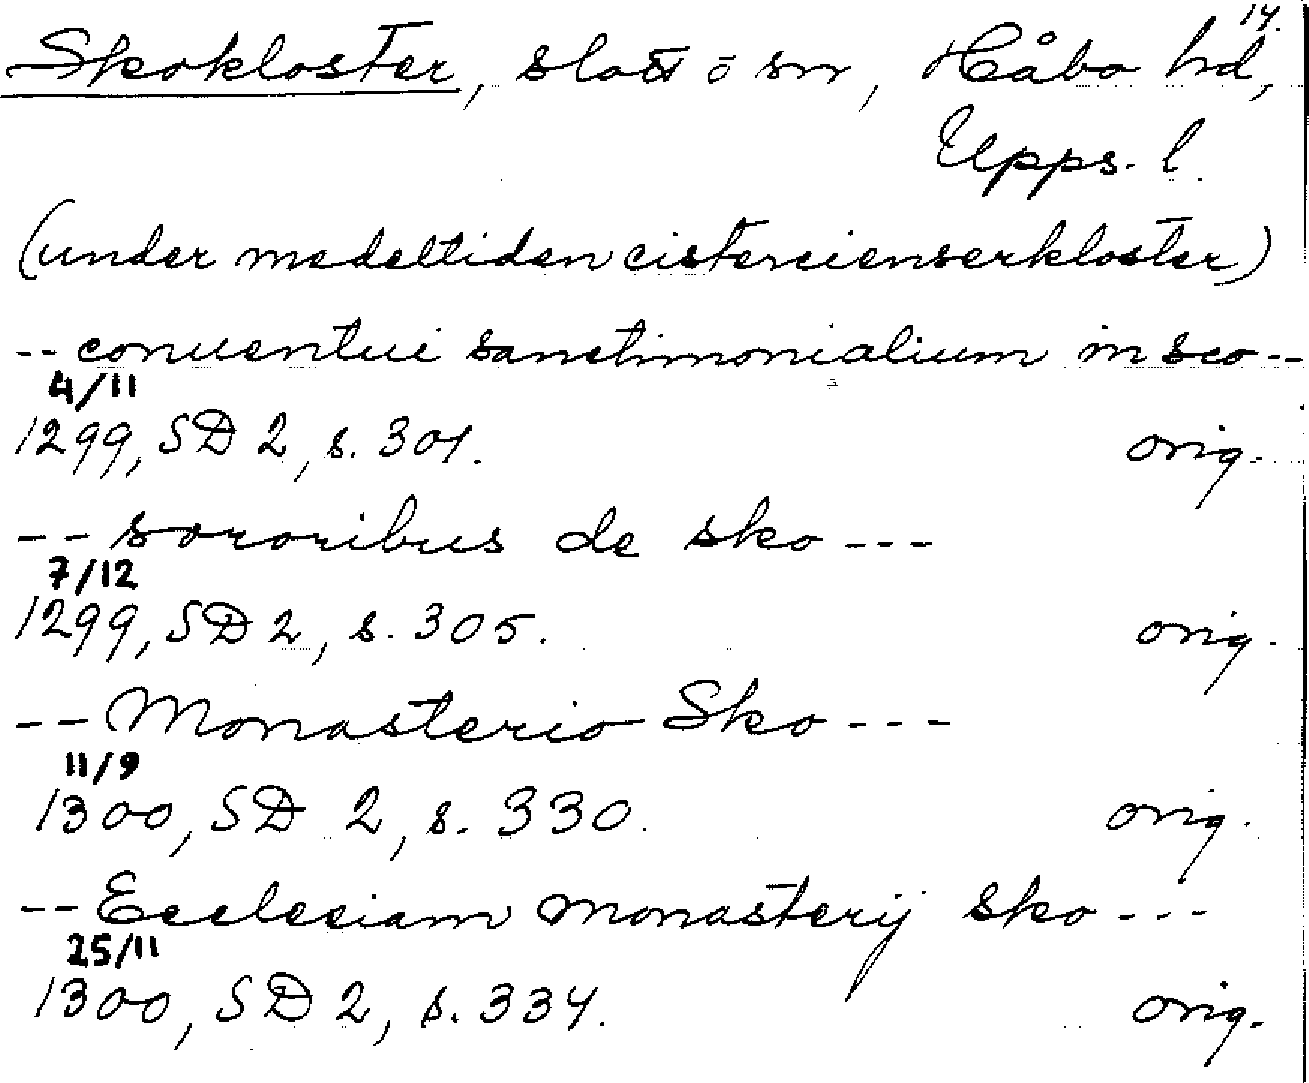 14.
Skokloster, slott o sn, Håbo hd,
Upps. l.
(under medeltiden cistercienserkloster)
-- conuentui sanctimonialium in sco --
4/11
1299, SD 2, s. 301. orig.
-- sororibus de sko ---
7/12
1299, SD 2, s. 305. orig.
-- Monasterio Sko ---
11/9
1300, SD 2, s. 330. orig.
-- Ecclesiam monasterij sko ---
25/11
1300, SD 2, s. 334. orig.